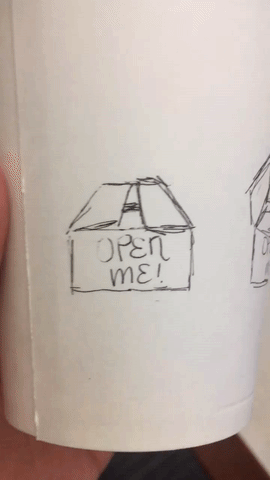 OPEN
ME!